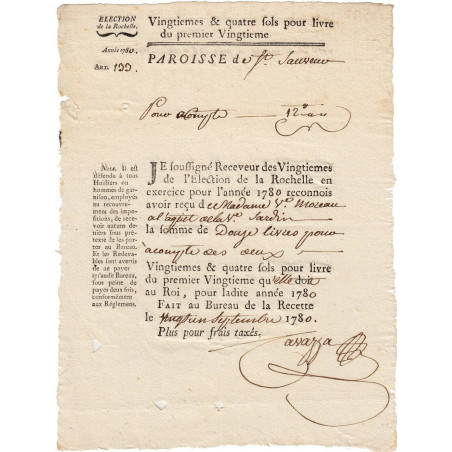 ELECTION
de la Rochelle.
Année 1780.
ART. 199.
Vingtiemes & quatre sols pour livre
du premier Vingtieme
PAROISSE de St. Sauveur
Pour acompte 12
Nota. Il est
défendu à tous
Huissiers ou
hommes de gar-
nison, employés
au recouvre-
ment des im-
positions, de re-
cevoir aucuns
deniers sous pré-
texte de les por-
ter au Bureau.
Et les Redeva-
bles sont avertis
de ne payer
qu'audit Bureau,
sous peine de
payer deux fois,
conformément
aux Réglemens.
JE soussigné Receveur des Vingtiemes
de l'Election de la Rochelle en
exercice pour l'année 1780 reconnois
avoir reçu de Madame Ve. Moreau
al aquit de la Ve. Jardin
la somme de Douze livres pour
acompte des deux
Vingtiemes & quatre sols pour livre
du premier Vingtieme qu'elle doit
au Roi, pour ladite année 1780
FAIT au Bureau de la Recette
le Septembre 1780.
Plus pour frais taxés.